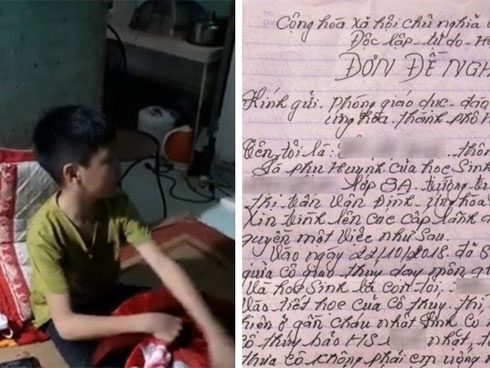 Cộng hòa xã hội chủ nghĩa
Độc lập - tự do - H
ĐƠN ĐỀ NGH
Kính gửi: Phòng giáo dục - đào
ứng hòa. thành phố H
Tên tôi là: thôn
Là phụ Huynh của học Sinh
lớp 8A. trường tr
thị trấn Vân Đình, ứng hòa
Xin trình lên các cấp lãnh đ
quyền một việc như Sau.
Vào ngày 22/10/2018 đã S
giữa cô giáo thủy dạy môn
và học Sinh là con tôi.
vào tiết học của cô thủy. thì
viên ở gần cháu nhất
cô thủy bảo HS nhặt, t
thưa cô không phải em